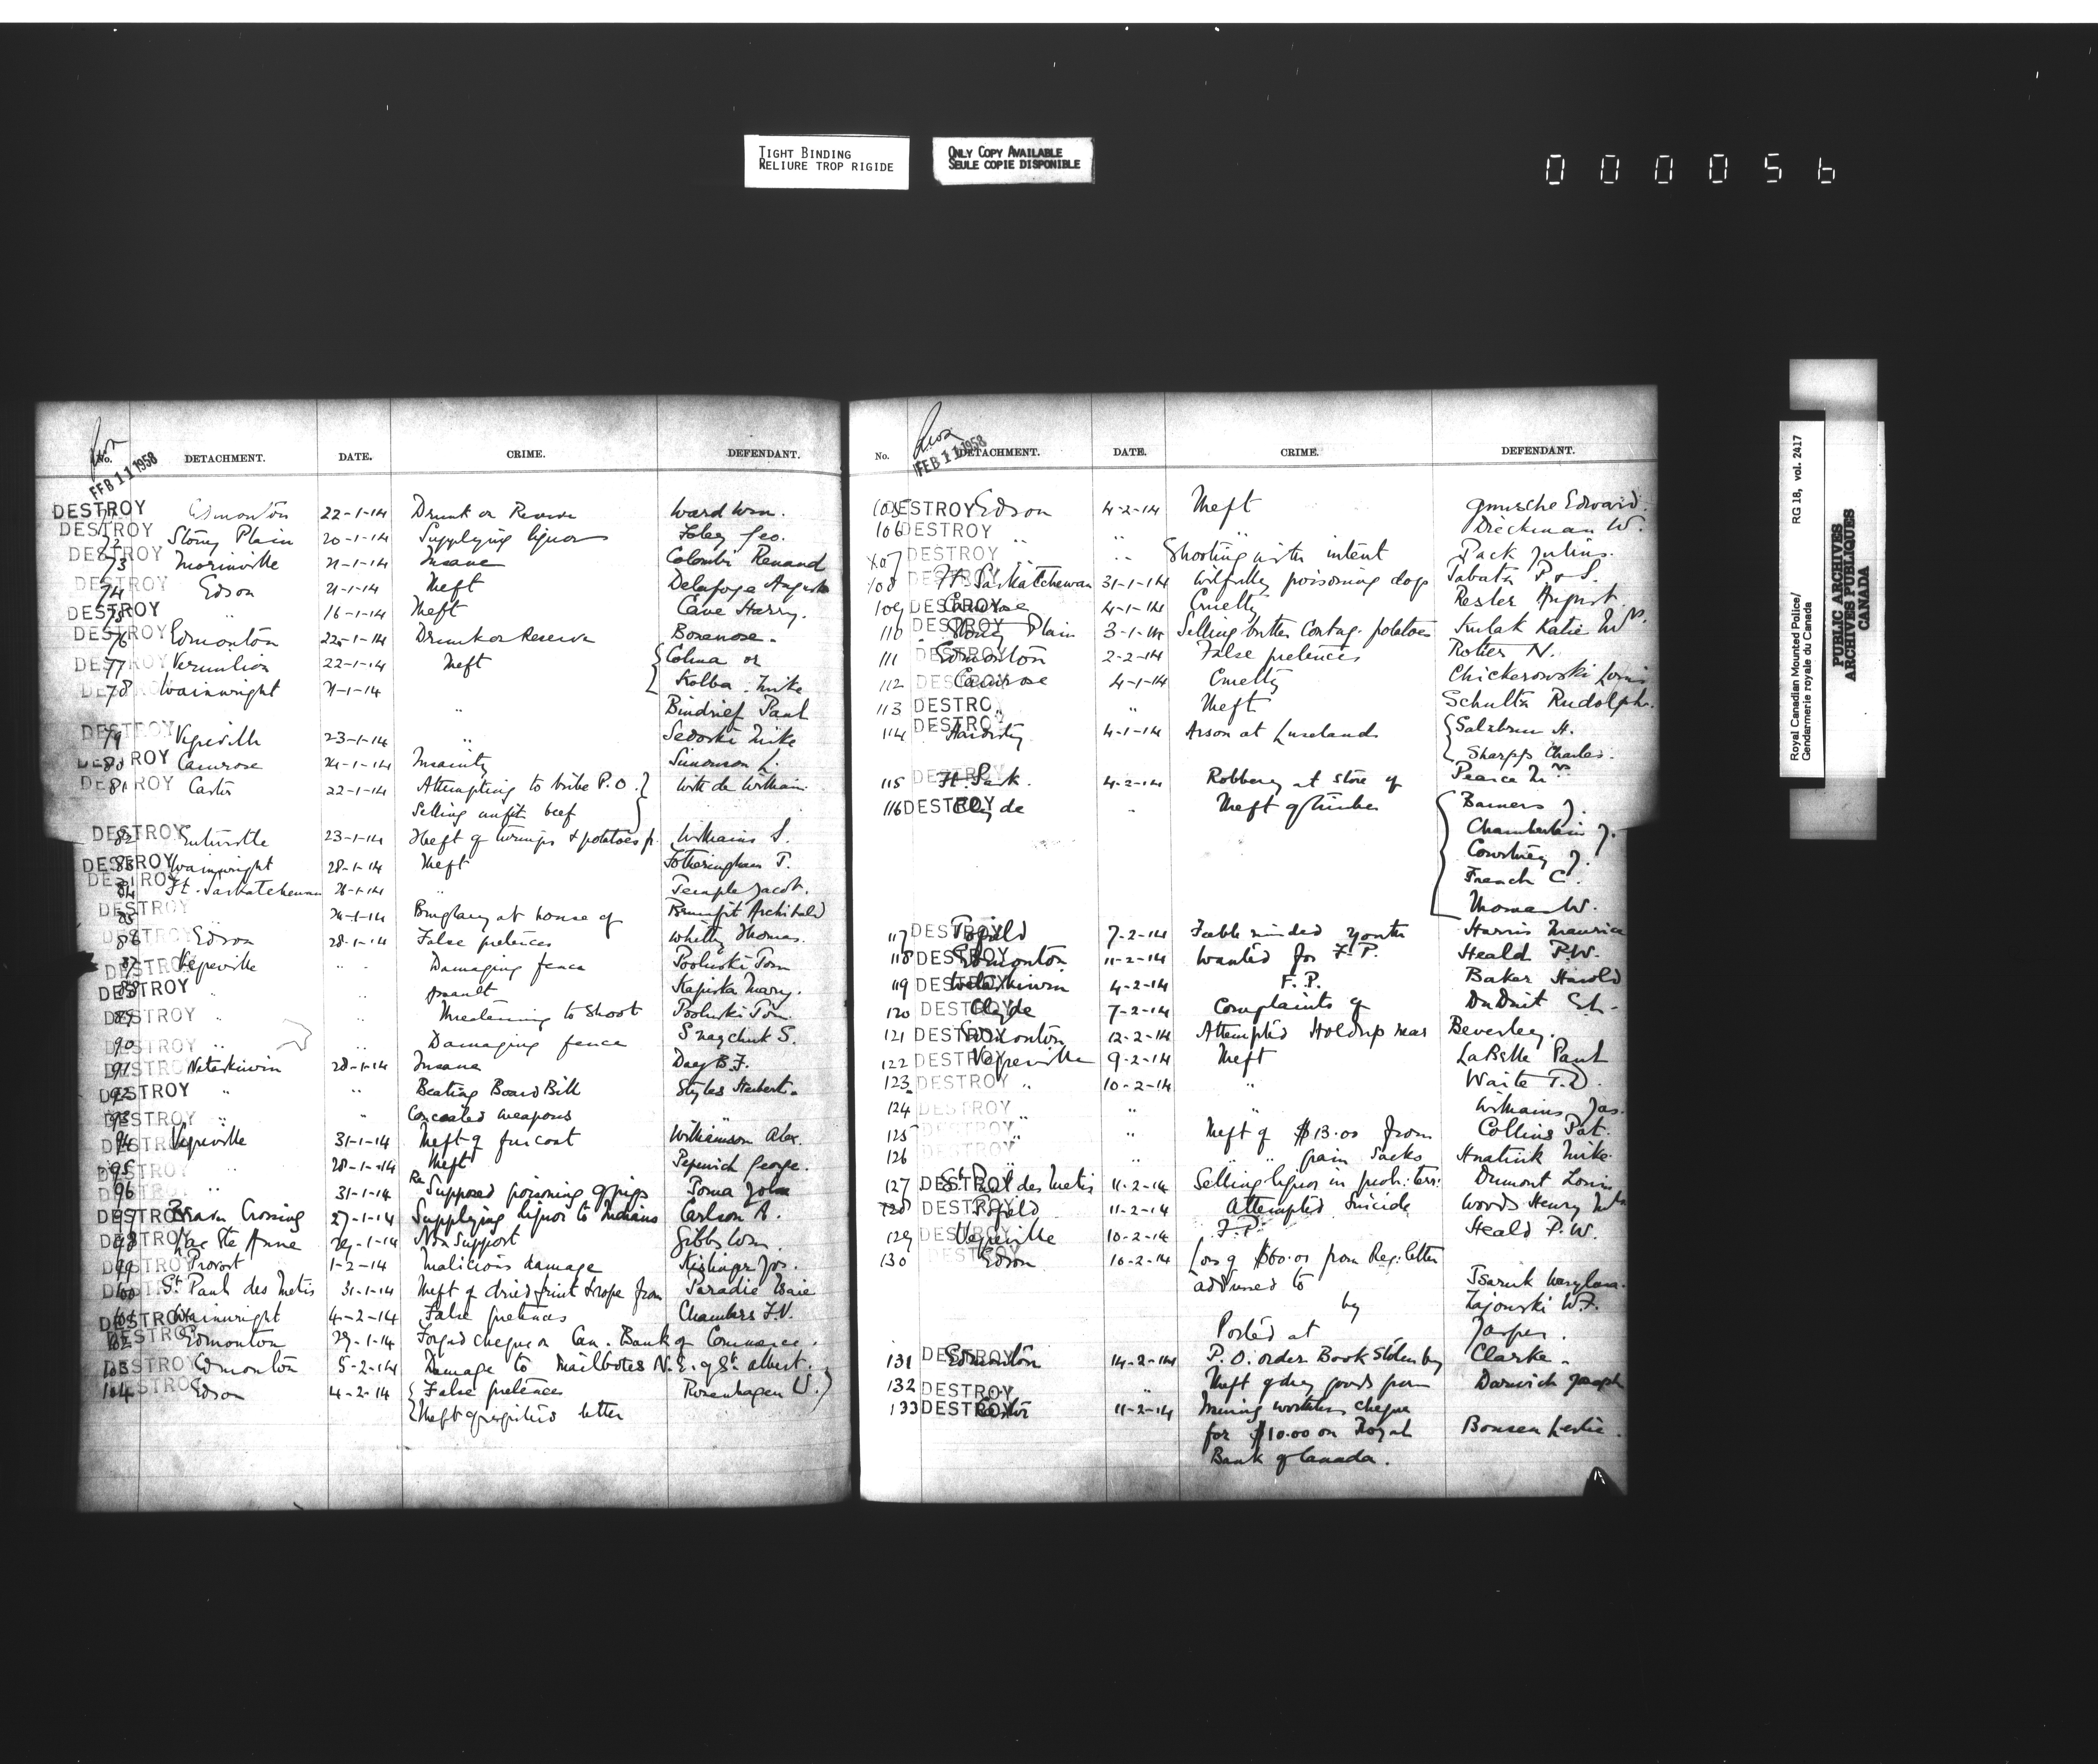 TIGHT BINDING
RELIURE TROP RIGIDE
ONLY COPY AVAILABLE
SEULE COPIE DISPONIBLE
000056
Royal Canadian Mounted Police/
Gendarmerie royale du Canada
RG 18, vol. 2417
PUBLIC ARCHIVES
ARCHIVES PUBLIQUES
CANADA
FEB 11 1958
No. DETACHMENT. DATE. CRIME. DEFENDANT.
DESTROY Edmonton 22-1-14 Drunk on Reserve Ward Wm.
DESTROY 72 Stony Plain 20-1-14 Supplying liquor Foley Geo.
DESTROY 73 Morinville 21-1-14 Insane Colombi Renaud
DESTROY 74 Edson 21-1-14 Theft
DESTROY 75 " 16-1-14 Theft Cave Harry.
DESTROY 76 Edmonton 22-1-14 Drunk on Reserve Bonenose.
DESTROY 77 Vermilion 22-1-14 Theft Colma or
78 Wainwright 21-1-14 Kolba Mike
" Bindrief Paul
DESTROY 79 Vegreville 23-1-14 " Sedoski Mike
DESTROY 80 Camrose 24-1-14 Insanity Simonson L.
DESTROY 81 Castor 22-1-14 Attempting to bribe P.O. Witt de William
Selling unfit beef
DESTROY 82 23-1-14 Theft of turnips & potatoes fr. Williams S.
DESTROY 83 Wainwright 28-1-14 Theft Fotheringham T.
DESTROY 84 Ft. Saskatchewan 26-1-14 " Temple Jacob.
DESTROY 85 " 24-1-14 Burglary at house of Archibald
DESTROY 86 Edson 28-1-14 False pretences Whitty Thomas.
DESTROY 87 Vegreville " Damaging fence Pooluski Tom
DESTROY 88 " " Assault Kapiska Mary.
DESTROY 89 " " Threatening to shoot Pooluski Tom
DESTROY 90 " " Damaging fence Snaychuk S.
DESTROY 91 Wetaskiwin 28-1-14 Insane Day B.F.
DESTROY 92 " " Beating Board Bill Styles Herbert.
DESTROY 93 " " Concealed weapons "
DESTROY 94 Vegreville 31-1-14 Theft of fur coat Williamson Alex.
DESTROY 95 " 28-1-14 Theft Pepenich George.
DESTROY 96 " 31-1-14 Re Supposed poisoning of pigs Toma John
DESTROY 97 Crossing 27-1-14 Supplying liquor to Indians Carlson A.
DESTROY 98 Lac Ste Anne 29-1-14 Non Support Gibbs Wm.
DESTROY 99 Provost 1-2-14 Malicious damage Kislinger Jos.
DESTROY 100 St. Paul des Metis 31-1-14 Theft of dried fruit & rope from Paradie Isaie
DESTROY 101 Wainwright 4-2-14 False pretences Chambers F.V.
DESTROY 102 Edmonton 29-1-14 Forged cheque on Can. Bank of Commerce.
DESTROY 103 Edmonton 5-2-14 Damage to mailboxes N.E. of St. Albert.
DESTROY 104 Edson 4-2-14 False pretences Rosenhagen W.
Theft of registered letter
FEB 11 1958
No. DETACHMENT. DATE. CRIME. DEFENDANT.
105 DESTROY Edson 4-2-14 Theft Edward.
106 DESTROY " " " Dieckman W.
107 DESTROY " " Shooting with intent Pack Julius.
108 DESTROY Ft. Saskatchewan 31-1-14 Wilfully poisoning dogs Tabata P. & S.
109 DESTROY Camrose 4-1-14 Cruelty Rester August
110 DESTROY Stony Plain 3-1-14 Selling butter Contag. potatoes Kulak Katie Mrs.
111 DESTROY Edmonton 2-2-14 False pretences Rotter N.
112 DESTROY Camrose 4-1-14 Cruelty Chickerowski Louis
113 DESTROY " " Theft Schultz Rudolph.
114 DESTROY Hardisty 4-1-14 Arson at Luseland Salzbrun H.
Sharpps Charles.
115 DESTROY Ft. Sask. 4-2-14 Robbery at store of Pearce Mrs.
116 DESTROY Clyde " Theft of timber Barners J.
Chamberlain J.
Courtney J.
French C.
Thomas W.
117 DESTROY Tofield 7-2-14 Feeble minded youth Harris Maurice
118 DESTROY Edmonton 11-2-14 Wanted for F.P. Heald P.W.
119 DESTROY Wetaskiwin 4-2-14 F.P. Baker Harold
120 DESTROY Clyde 7-2-14 Complaints of
121 DESTROY Edmonton 12-2-14 Attempted Holdup near Beverley.
122 DESTROY Vegreville 9-2-14 Theft LaBelle Paul
123 DESTROY " 10-2-14 " Waite T.D.
124 DESTROY " " " Williams Jas.
125 DESTROY " " Theft of $13.00 from Collins Pat.
126 DESTROY " " " " grain sacks Hnatiuk Mike
127 DESTROY St. Paul des Metis 11-2-14 Selling liquor in proh: terr: Dumont Louis
128 DESTROY Tofield 11-2-14 Attempted Suicide Woods Henry Mrs
129 DESTROY Vegreville 10-2-14 F.P. Heald P.W.
130 DESTROY Edson 10-2-14 Loss of $60.01 from Reg: letter
addressed to Tsaruk
by Zajowski W.F.
Posted at Jasper.
131 DESTROY Edmonton 14-2-14 P.O. order Book Stolen by Clarke.
132 DESTROY " " Theft of dry goods from Darwich Joseph
133 DESTROY Castor 11-2-14 Issuing worthless cheque
for $10.00 on Royal Bonsen Leslie.
Bank of Canada.